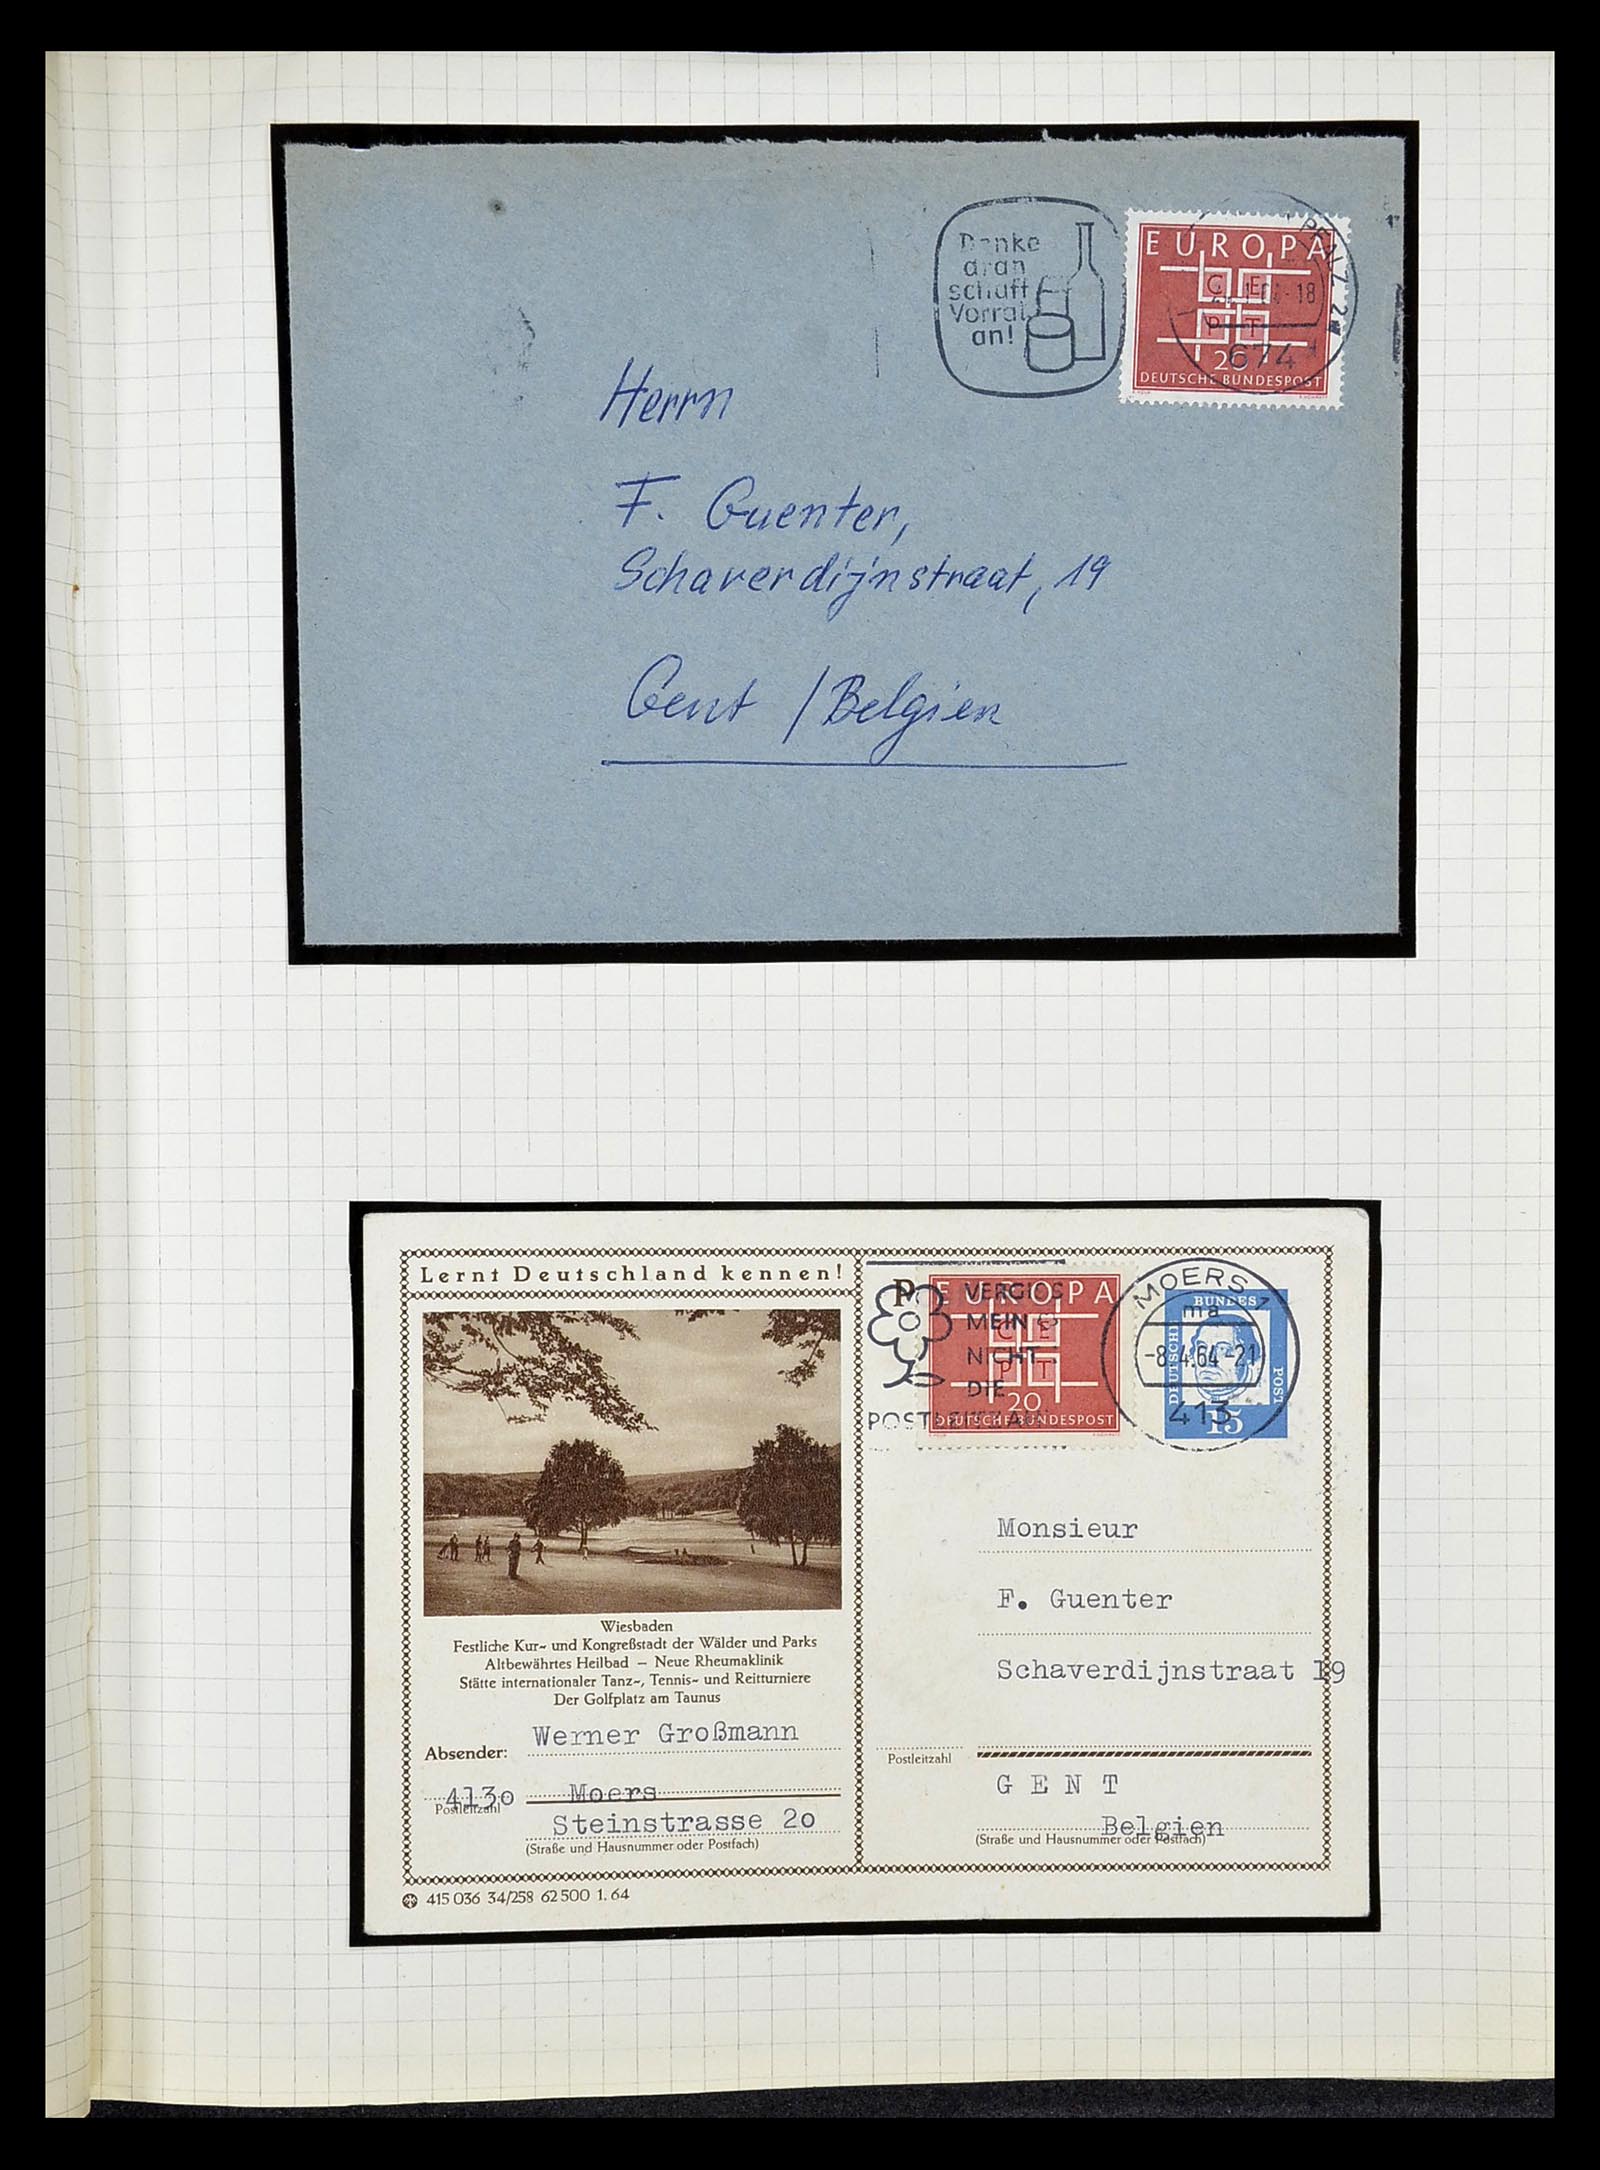 Denke
dran
schaff
Vorrat
an!
EUROPA
C E
P T
20
DEUTSCHE BUNDESPOST
PFALZ 2
-18
674
Herrn
F. Guenter,
Schaverdijnstraat, 19
Gent / Belgien
Lernt Deutschland kennen!
VERGISS
MEIN
NICHT
DIE
POSTLEITZAHL
EUROPA
C E
P T
20
DEUTSCHE BUNDESPOST
MOERS 1
ma
-8.4.64-21
413
DEUTSCHE
BUNDES
POST
15
Wiesbaden
Festliche Kur- und Kongreßstadt der Wälder und Parks
Altbewährtes Heilbad – Neue Rheumaklinik
Stätte internationaler Tanz-, Tennis- und Reitturniere
Der Golfplatz am Taunus
Absender: Werner Großmann
4130 Moers
Postleitzahl
Steinstrasse 20
(Straße und Hausnummer oder Postfach)
Monsieur
F. Guenter
Schaverdijnstraat 19
Postleitzahl
G E N T
Belgien
(Straße und Hausnummer oder Postfach)
415 036 34/258 62 500 1. 64